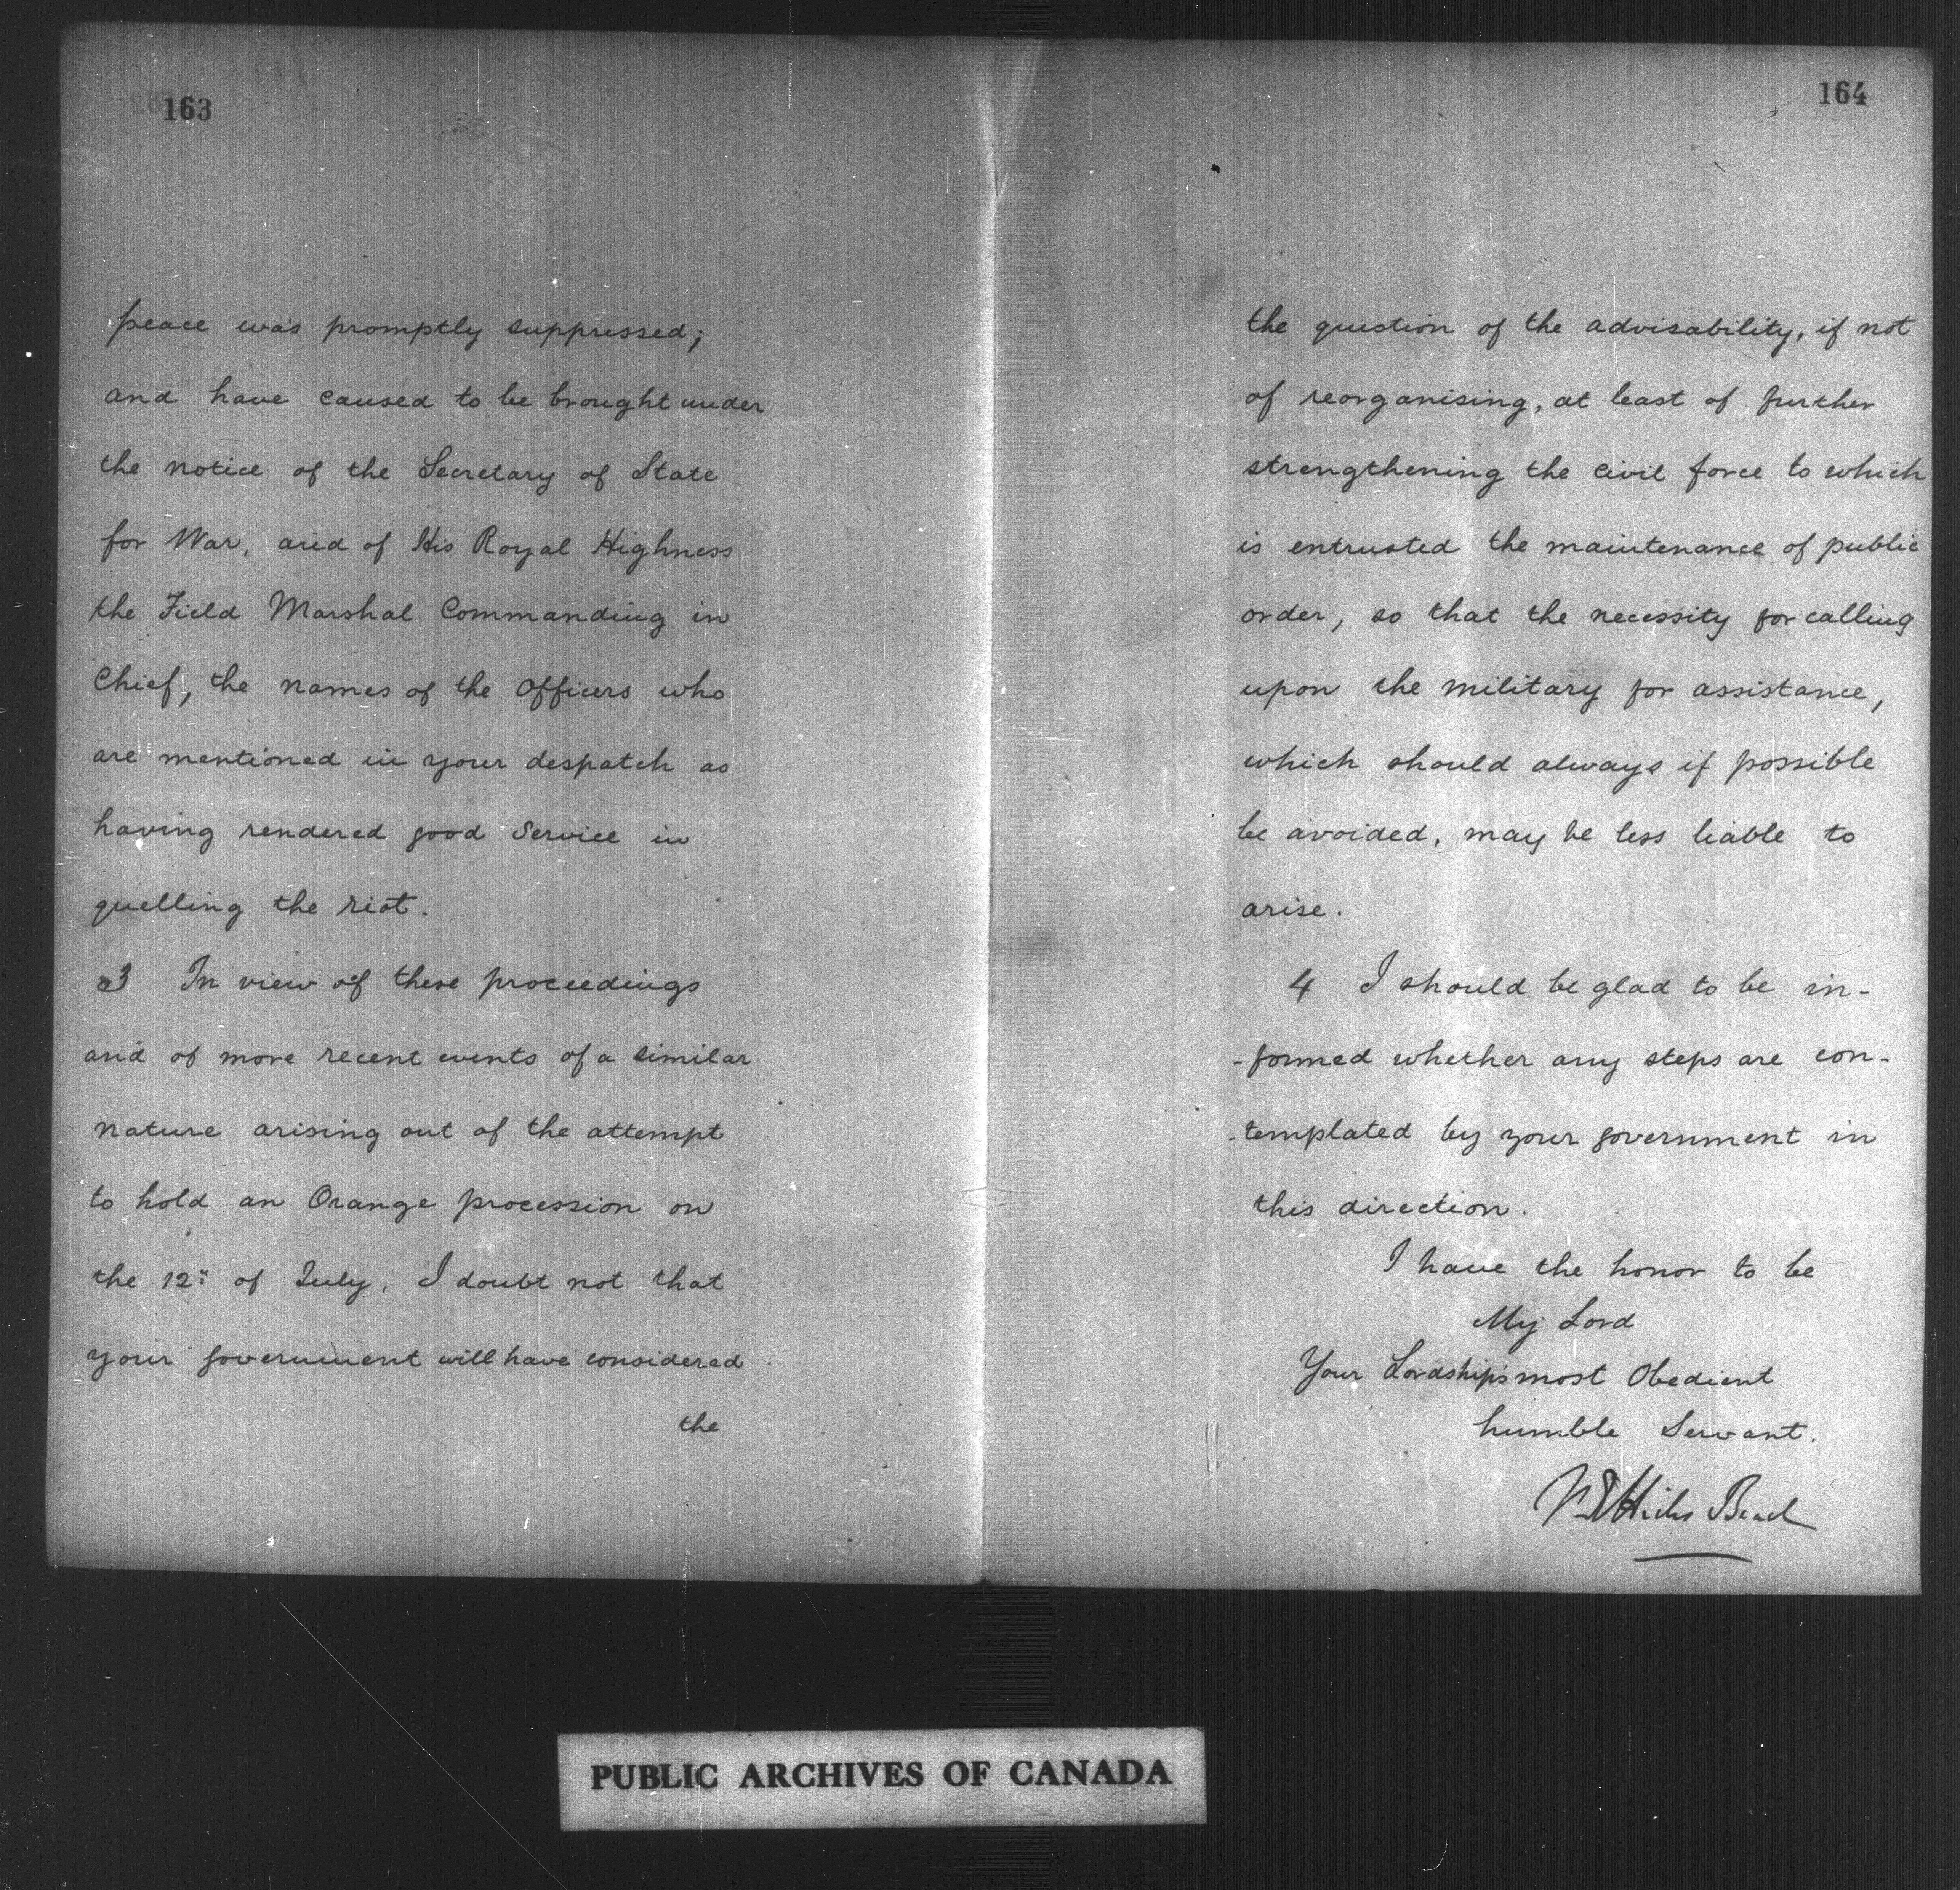 163
peace was promptly suppressed;
and have caused to be brought under
the notice of the Secretary of State
for War, and of His Royal Highness
the Field Marshal Commanding in
Chief, the names of the Officers who
are mentioned in your despatch as
having rendered good Service in
quelling the riot.
3 In view of these proceedings
and of more recent events of a similar
nature arising out of the attempt
to hold an Orange procession on
the 12" of July, I doubt not that
your government will have considered
the
164
the question of the advisability, if not
of reorganising, at least of further
strengthening the civil force to which
is entrusted the maintenance of public
order, so that the necessity for calling
upon the military for assistance,
which should always if possible
be avoided, may be less liable to
arise.
4 I should be glad to be in-
-formed whether any steps are con-
-templated by your government in
this direction.
I have the honor to be
My Lord
Your Lordship's most Obedient
humble Servant.
M E Hicks Beach
PUBLIC ARCHIVES OF CANADA